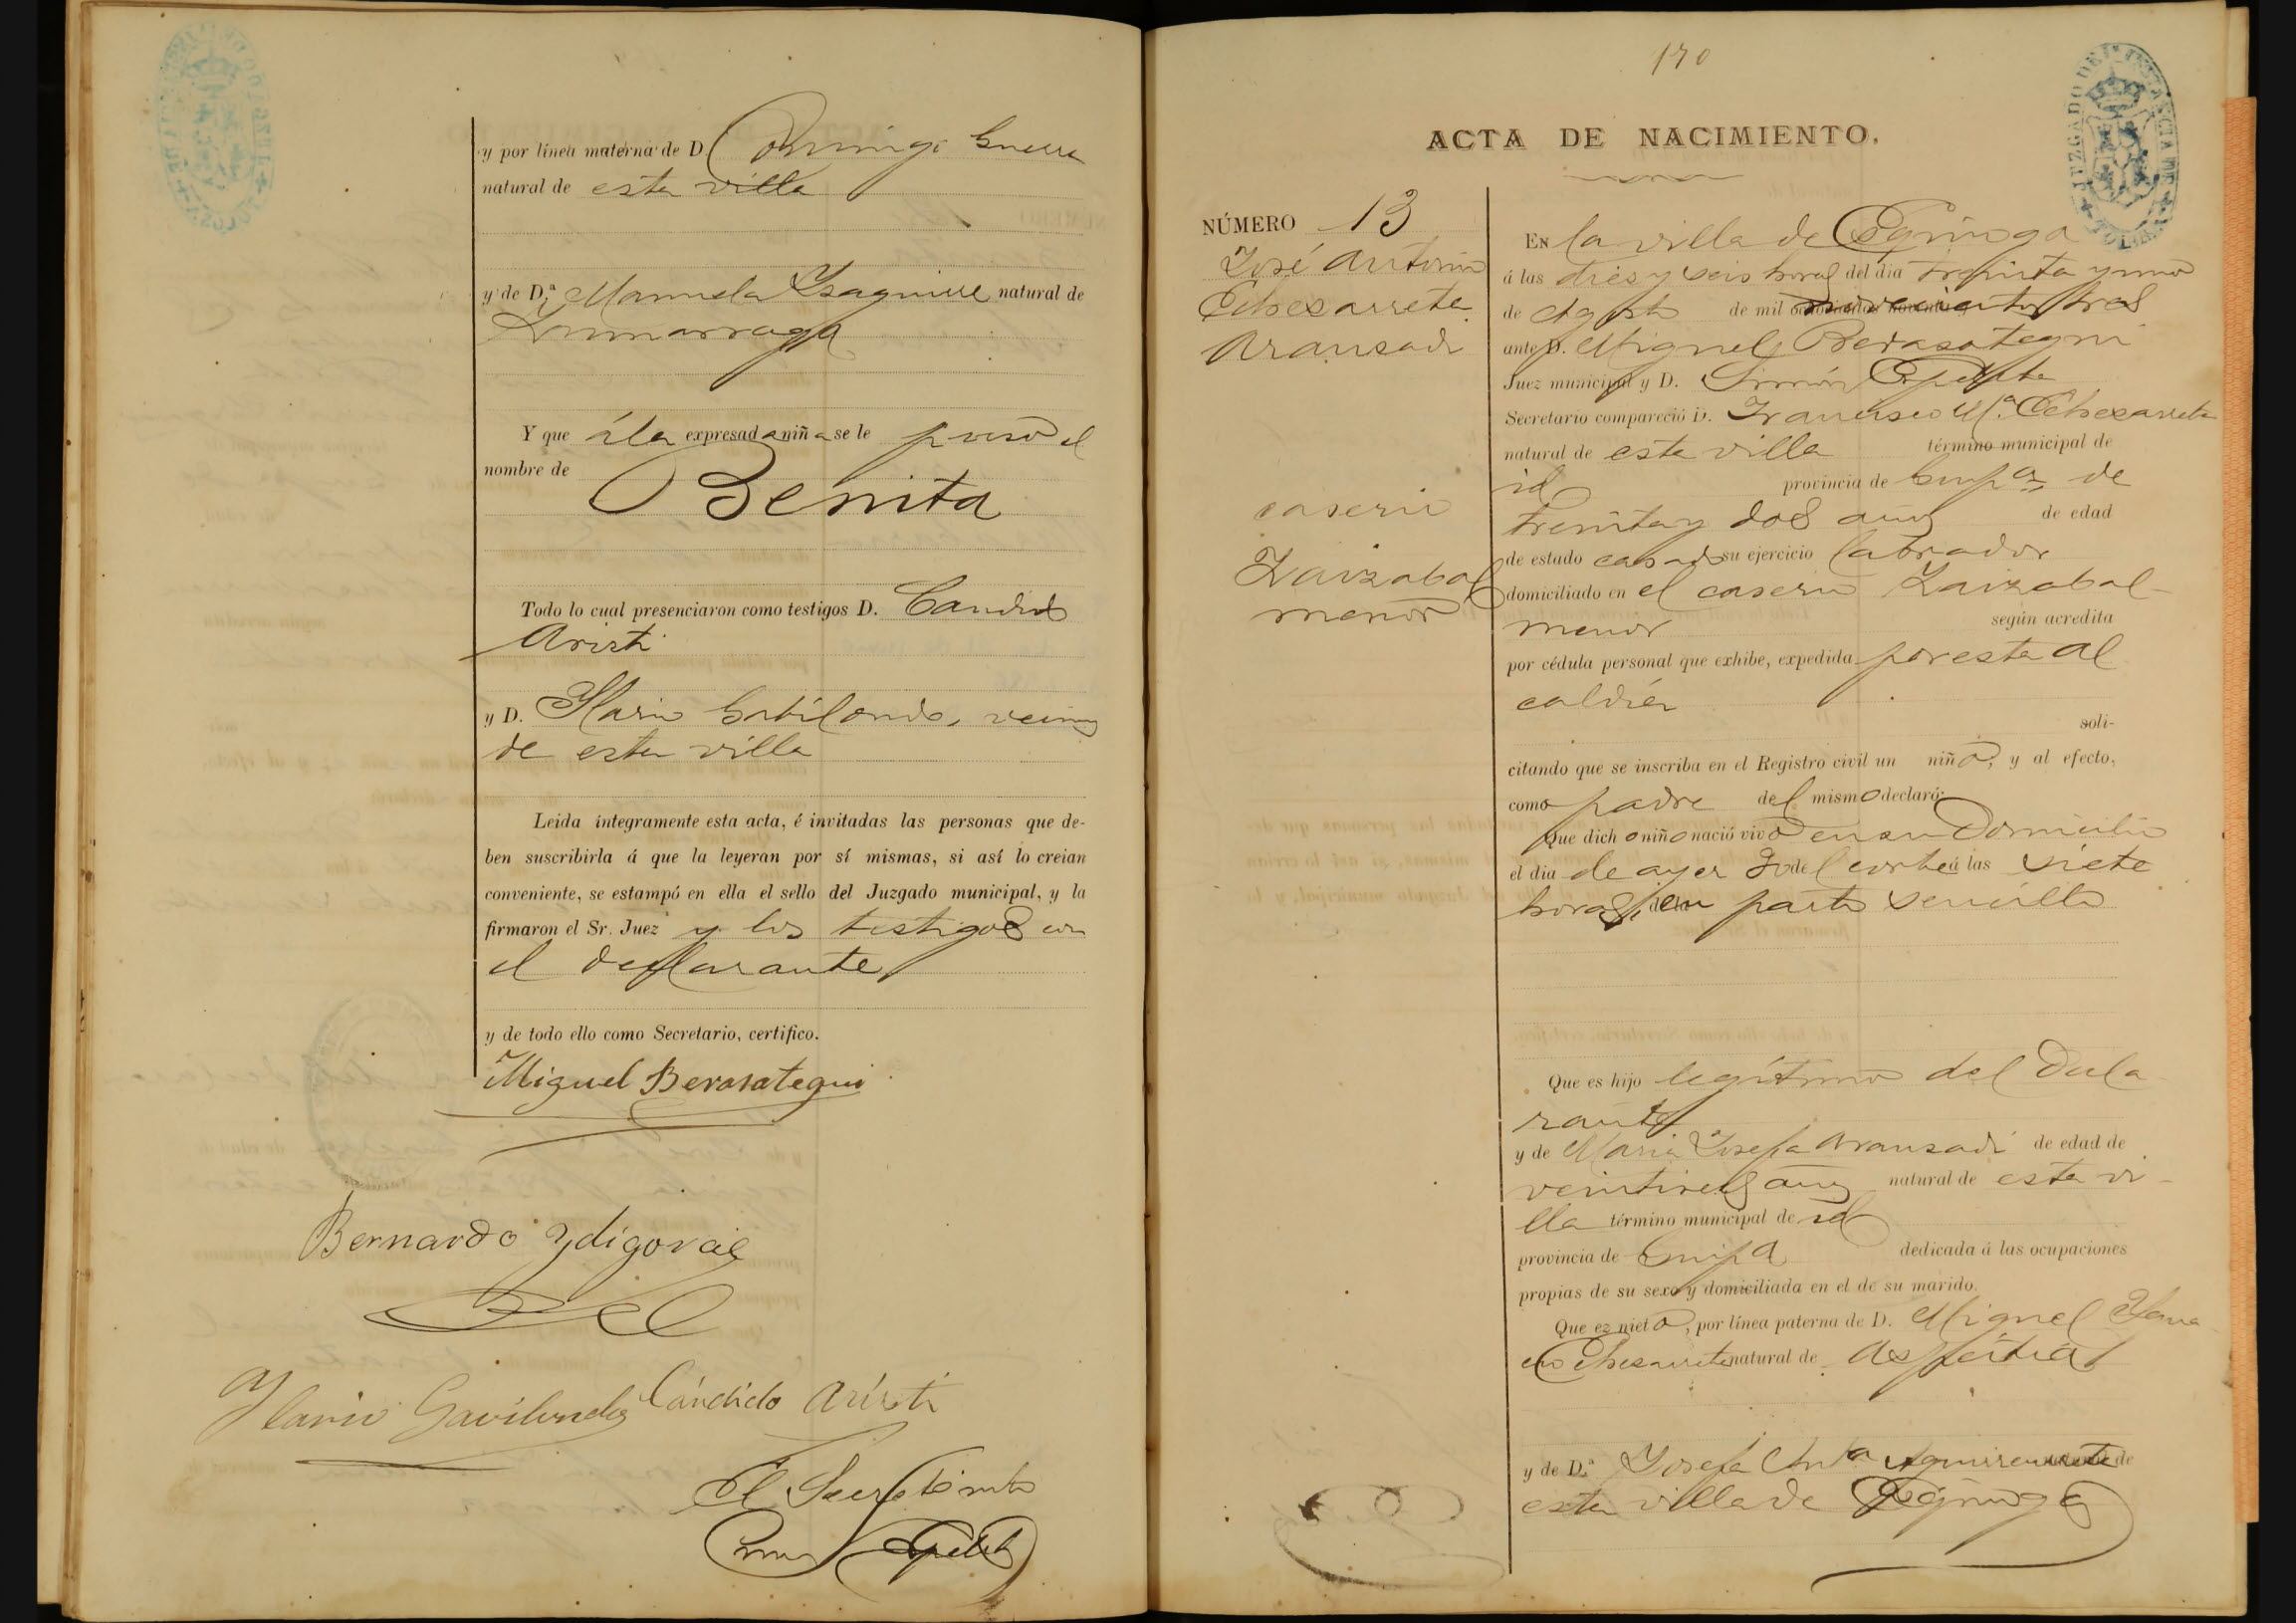 y por línea materna de D. Domingo Guerra
natural de esta villa
y de D.ª Manuela Yzaguirre natural de
Zumarraga
Y que á la expresada niña se le puso el
nombre de
Benita
Todo lo cual presenciaron como testigos D. Candido
Aristi
y D. Ylario Gabilondo, vecinos
de esta villa
Leida íntegramente esta acta, é invitadas las personas que de-
ben suscribirla á que la leyeran por sí mismas, si así lo creian
conveniente, se estampó en ella el sello del Juzgado municipal, y la
firmaron el Sr. Juez y los testigos con
el declarante
y de todo ello como Secretario, certifico.
Miguel Berasategui
Bernardo Ydigoras
Ylario Gavilondo Cándido Aristi
El Secretario
170
ACTA DE NACIMIENTO.
JUZGADO DE 1.ª INSTANCIA DE TOLOSA
NÚMERO 13
José Antonio
Echezarreta
Aranzadi
caserio
Zaizabal
menor
En la villa de Ezquioga
á las dies y seis horas del dia treinta y uno
de Agosto de mil novecientos tres
ante D. Miguel Berasategui
Juez municipal y D. Simón
Secretario compareció D. Francisco M.ª Echezarreta
natural de esta villa término municipal de
id provincia de Guipª de
treinta y dos años de edad
de estado casado su ejercicio labrador
domiciliado en el caserio Zaizabal-
menor según acredita
por cédula personal que exhibe, expedida por esta al
caldía
soli-
citando que se inscriba en el Registro civil un niño, y al efecto,
como padre del mismo declaró:
Que dicho niño nació vivo en su Domicilio
el dia de ayer 30 del corte á las siete
horas, en parto sencillo
Que es hijo legítimo del Decla
rante
y de Maria Josefa Aranzadi de edad de
años natural de esta vi-
lla término municipal de id
provincia de Guipª dedicada á las ocupaciones
propias de su sexo y domiciliada en el de su marido.
Que es nieto, por línea paterna de D. Miguel Ygna
cio Echezarreta natural de Azpeitia
y de D.ª Josefa Antª natural de
esta villa de Ezquioga